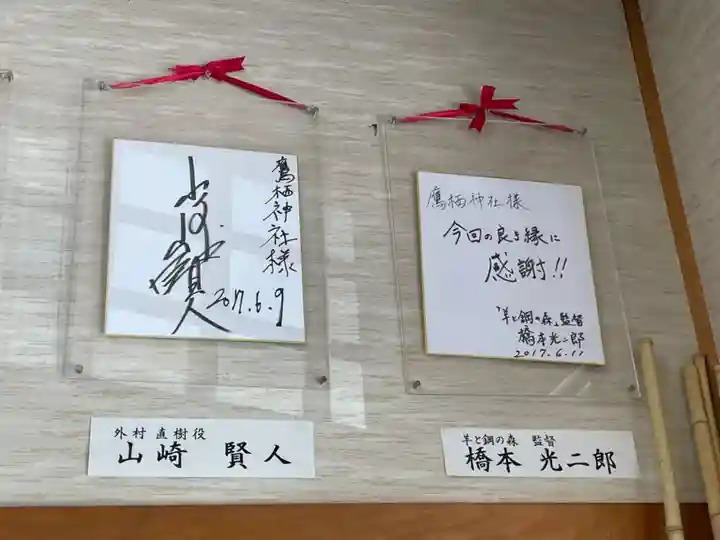 鷹栖神社様
山﨑賢人
2017.6.9
外村 直樹役
山崎 賢人
鷹栖神社様
今回の良き縁に
感謝!!
「羊と鋼の森」監督
橋本光二郎
2017.6.11
羊と鋼の森 監督
橋本 光二郎